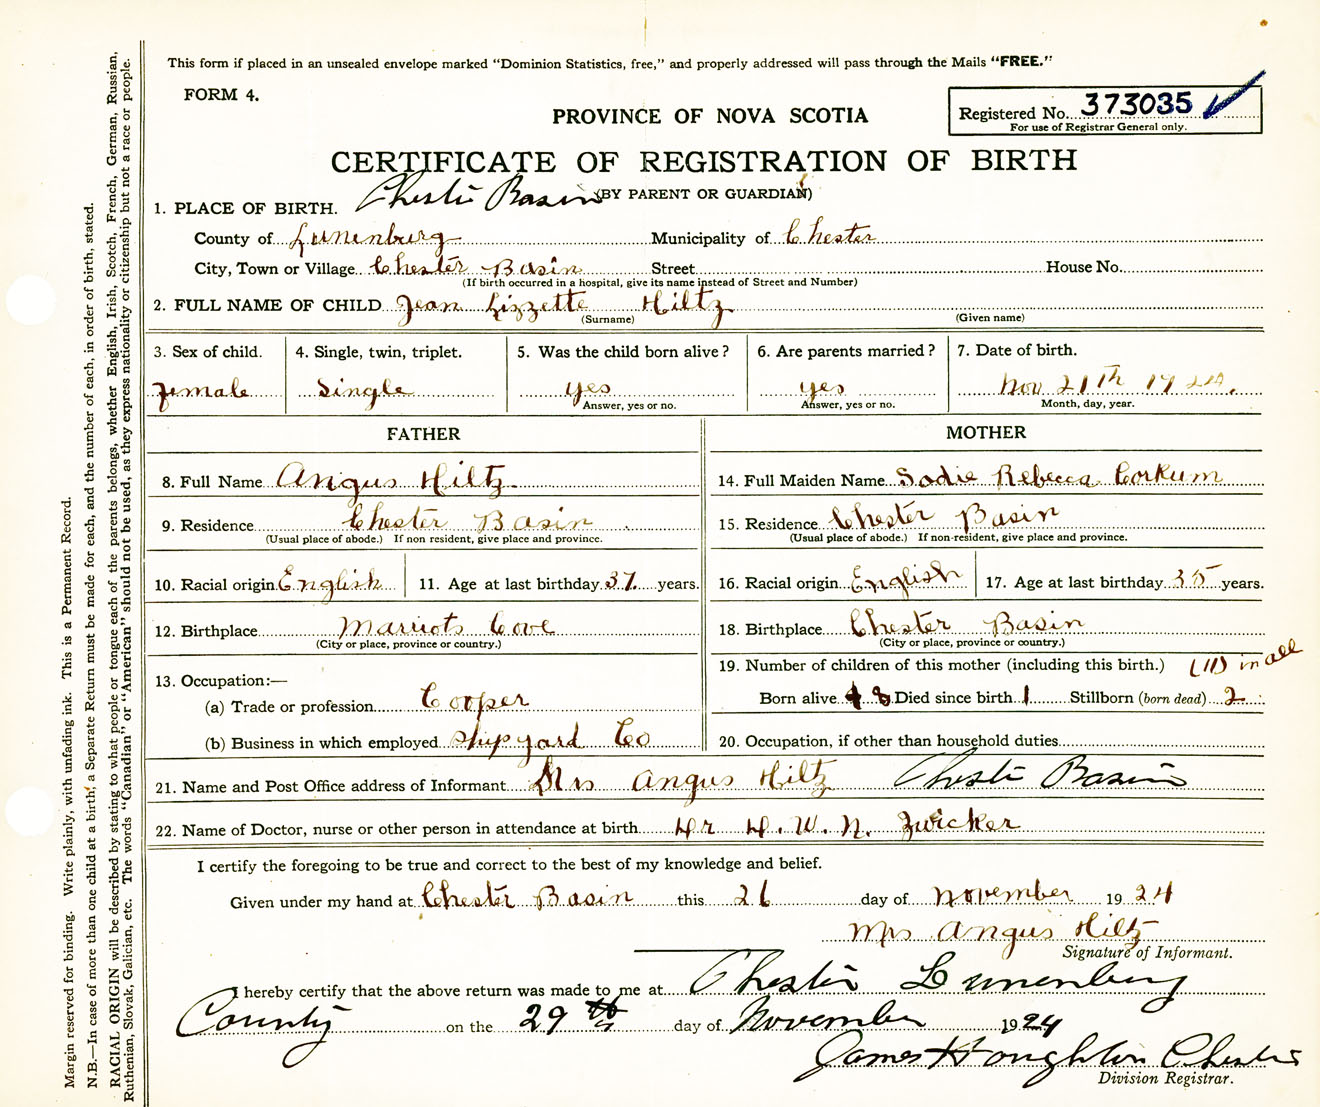 This form if placed in an unsealed envelope marked "Dominion Statistics, free," and properly addressed will pass through the Mails "FREE."
FORM 4.
PROVINCE OF NOVA SCOTIA
Registered No. 373035
For use of Registrar General only.
CERTIFICATE OF REGISTRATION OF BIRTH
(BY PARENT OR GUARDIAN)
1. PLACE OF BIRTH. Chester Basin
County of Lunenburg Municipality of Chester
City, Town or Village Chester Basin Street House No.
(If birth occurred in a hospital, give its name instead of Street and Number)
2. FULL NAME OF CHILD Jean Lizzette Hiltz
(Surname) (Given name)
3. Sex of child. 4. Single, twin, triplet. 5. Was the child born alive? 6. Are parents married? 7. Date of birth.
female Single yes yes Nov 21th 1924.
Answer, yes or no. Answer, yes or no. Month, day, year.
FATHER
8. Full Name Angus Hiltz
9. Residence Chester Basin
(Usual place of abode.) If non resident, give place and province.
10. Racial origin English 11. Age at last birthday 37 years.
12. Birthplace Marriots Cove
(City or place, province or country.)
13. Occupation:—
(a) Trade or profession Cooper
(b) Business in which employed Shipyard Co
MOTHER
14. Full Maiden Name Sadie Rebecca Corkum
15. Residence Chester Basin
(Usual place of abode.) If non-resident, give place and province.
16. Racial origin English 17. Age at last birthday 35 years.
18. Birthplace Chester Basin
(City or place, province or country.)
19. Number of children of this mother (including this birth.) (11) in all
Born alive 8 Died since birth 1 Stillborn (born dead) 2
20. Occupation, if other than household duties
21. Name and Post Office address of Informant Mrs Angus Hiltz Chester Basin
22. Name of Doctor, nurse or other person in attendance at birth Dr D. W. N. Zwicker
I certify the foregoing to be true and correct to the best of my knowledge and belief.
Given under my hand at Chester Basin this 26 day of November 1924
Mrs Angus Hiltz
Signature of Informant.
I hereby certify that the above return was made to me at Chester Lunenburg
County on the 29th day of November 1924
James Houghton Chester
Division Registrar.
Margin reserved for binding. Write plainly, with unfading ink. This is a Permanent Record.
N.B.—In case of more than one child at a birth, a Separate Return must be made for each, and the number of each, in order of birth, stated.
RACIAL ORIGIN will be described by stating to what people or tongue each of the parents belongs, whether English, Irish, Scotch, French, German, Russian,
Ruthenian, Slovak, Galician, etc. The words "Canadian" or "American" should not be used, as they express nationality or citizenship but not a race or people.